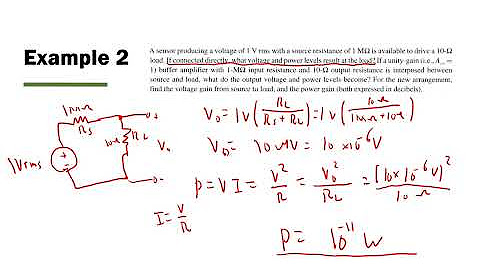 Example 2
A sensor producing a voltage of 1 V rms with a source resistance of 1 MΩ is available to drive a 10-Ω
load. If connected directly, what voltage and power levels result at the load? If a unity-gain (i.e., A =
1) buffer amplifier with 1-MΩ input resistance and 10-Ω output resistance is interposed between
source and load, what do the output voltage and power levels become? For the new arrangement,
find the voltage gain from source to load, and the power gain (both expressed in decibels).
1MΩ
Rs
10Ω RL
Vo
1Vrms
Vo = 1V (RL / (Rs + RL)) = 1V (10Ω / (1MΩ + 10Ω))
Vo = 10 MV = 10 × 10^-6 V
P = V I = V^2 / R = Vo^2 / RL = (10 × 10^-6 V)^2 / 10 Ω
I = V / R
P = 10^-11 W